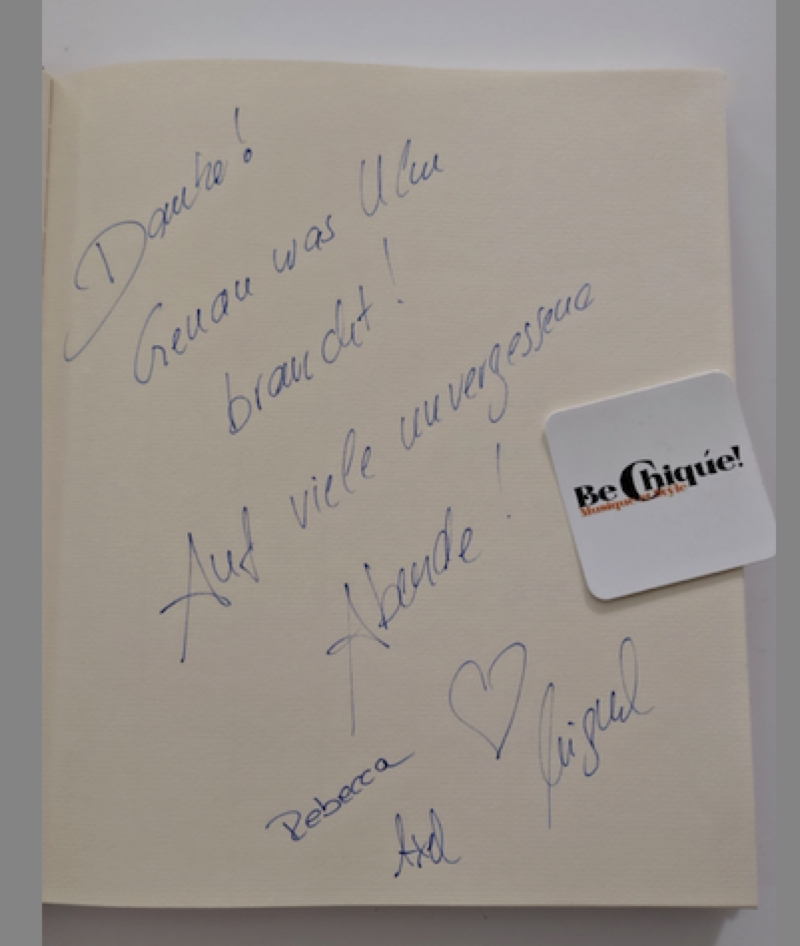 Danke!
Genau was Ulm
braucht!
Auf viele unvergessene
Abende!
Be Chiqúe!
Musique & Style
Rebecca
Miguel
Axel